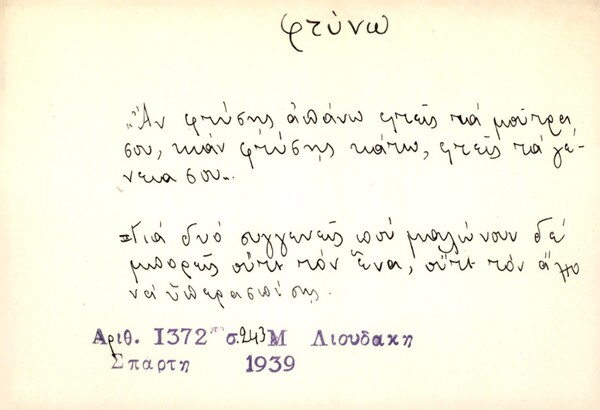 φτύνω
„Ἄν φτύσῃς ἀπάνω φτεῖς τά μοῦτρα
σου, κιἄν φτύσῃς κάτω, φτεῖς τά γέ-
νεια σου„.
Γιά δυό συγγενεῖς πού μαλώνουν δέ
μπορεῖς οὔτε τόν ἕνα, οὔτε τόν ἄλλο
νά ὑπερασπίσῃς.
Αριθ. 1372 σ. 243 Μ Λιουδακη
Σπαρτη 1939